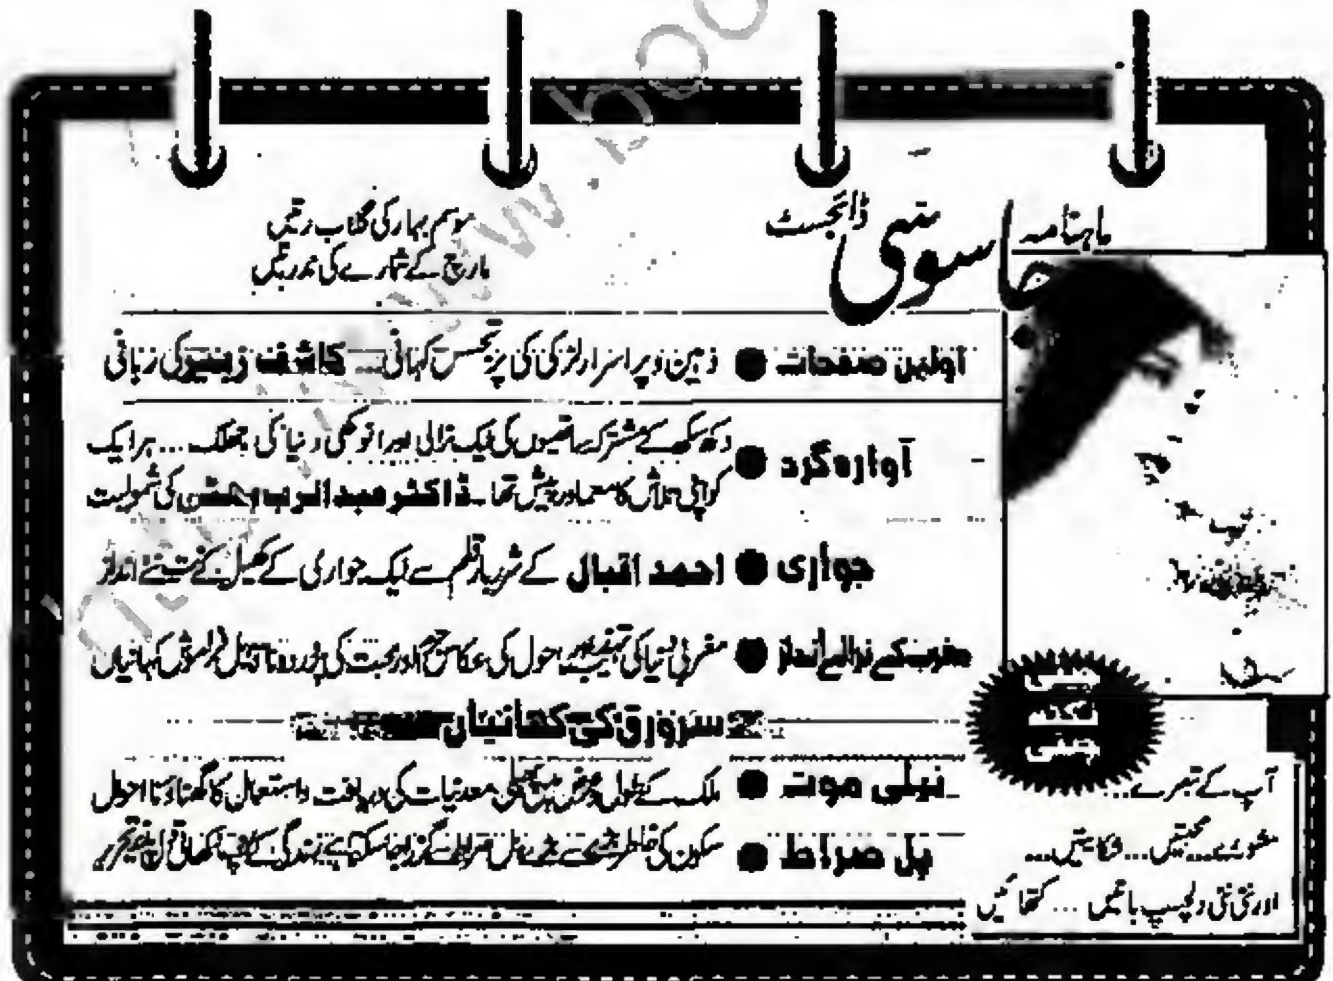 ماہنامہ
جاسوسی
ڈائجسٹ
موسم بہار کی گلاب رتیں
مارچ کے شمارے کی ندرتیں
اولین صفحات ● ذہین و پراسرار لڑکی کی پرتجسس کہانی... کاشف زبیر کی زبانی
آوارہ گرد ● دکھ سکھ کے مشترکہ ساتھیوں کی ایک نرالی اور انوکھی دنیا کی جھلک... ہر ایک
کو اپنی تلاش کا معما درپیش تھا۔ ڈاکٹر عبدالرب بھٹی کی شمولیت
جواری ● احمد اقبال کے شہر یار قلم سے ایک جواری کے کھیل کے نت نئے انداز
مغرب کے نرالے انداز ● مغربی دنیا کی تہذیب، ماحول کی عکاس جرم اور محبت کی کہانیاں
سرورق کی کہانیاں
نیلی موت ● ملک کے طول و عرض میں معدنیات کی دریافت و استعمال کا گھناؤنا احوال
پل صراط ● سکون کی خاطر زندگی
چینی
نکتہ
چینی
آپ کے تبصرے...
مشورے... محبتیں... شکایتیں...
اور نئی نئی دلچسپ باتیں... کتھائیں